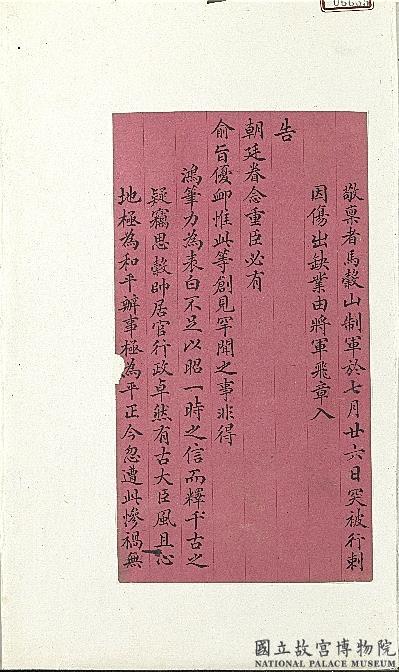 敬稟者馬榖山制軍於七月廿六日突被行刺
因傷出缺業由將軍飛章入
告
朝廷眷念重臣必有
俞旨優卹惟此等創見罕聞之事非得
鴻筆力為表白不足以昭一時之信而釋千古之
疑竊思榖帥居官行政卓然有古大臣風且心
地極為和平辦事極為平正今忽遭此慘禍無
國立故宮博物院
NATIONAL PALACE MUSEUM